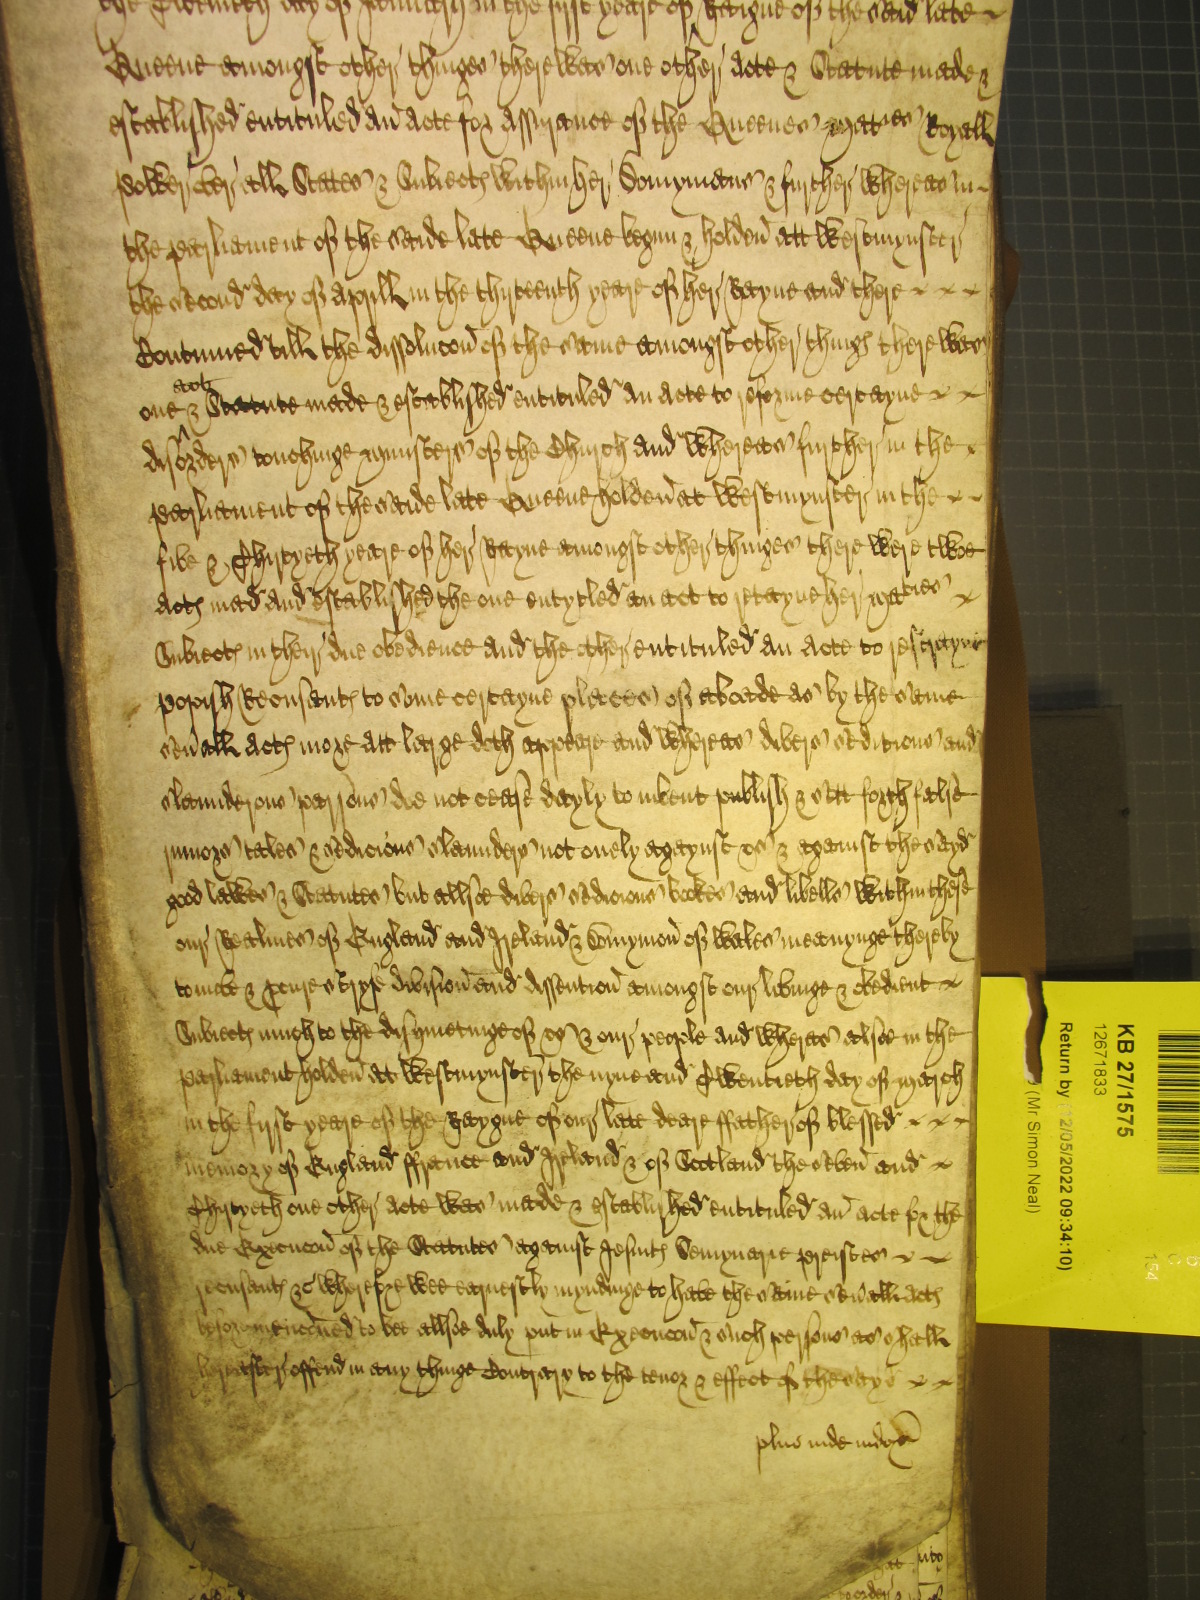 the Twentieth day of January in the first yeare of Raigne of the said late
Queene amongst other thinges there was one other Acte & Statute made &
established entituled An Acte for Assurance of the Queenes Maties Royall
power over all States & Subiects within her Domynions & further whereas in
the parliament of the saide late Queene begun & holden att Westmynster
the second day of Aprill in the thirteenth yeare of her Rayne and there
Contynued till the dissolucon of the same amongst other things there was
act
one & Statute made & established entituled An Acte to reforme certayne
disorders touchinge mynisters of the Church And whereas further in the
parliament of the saide late Queene holden at Westmynster in the
five & Thirtyeth yeare of her Rayne amongst other thinges there were twoe
Acts mad And established the one entytled an act to retayne her maties
Subiects in their due obedience And the other entituled An Acte to restrayne
popish Recusants to some certayne places of aboade as by the same
severall Acts more att large doth appeare and whereas divers seditious and
slaunderous parsons doe not cease dayly to invent publish & sett forth false
rumors tales & sedicious slaunders not onely agaynst us & against the sayd
good lawes & Statutes but allsoe divers sedicious bookes and libells within these
our Realmes of England and Ireland & Domynion of Wales meanynge thereby
to move & stryfe division and dissention amongst our lovinge & obedient
Subiects much to the disquietinge of us & our people And wheras alsoe in the
parliament holden at Westmynster the nyne and Twentieth day of March
in the first yeare of the Raygne of our late deare ffather of blessed
memory of England ffrance and Ireland & of Scotland the seven and
Thirtyeth one other Acte was made & established entituled An acte for the
due Execucon of the Statutes against Jesuits Semynarie preistes
recusants &c wherefore wee earnestly myndinge to have the same severall acts
beforemencioned to bee allsoe duly put in Execucon & such persons as shall
hereafter offend in any thinge Contrary to the tenor & effect of the sayd
plus inde indors
KB 27/1575
12671833
Return by 12/05/2022 09:34:10)
(Mr Simon Neal)